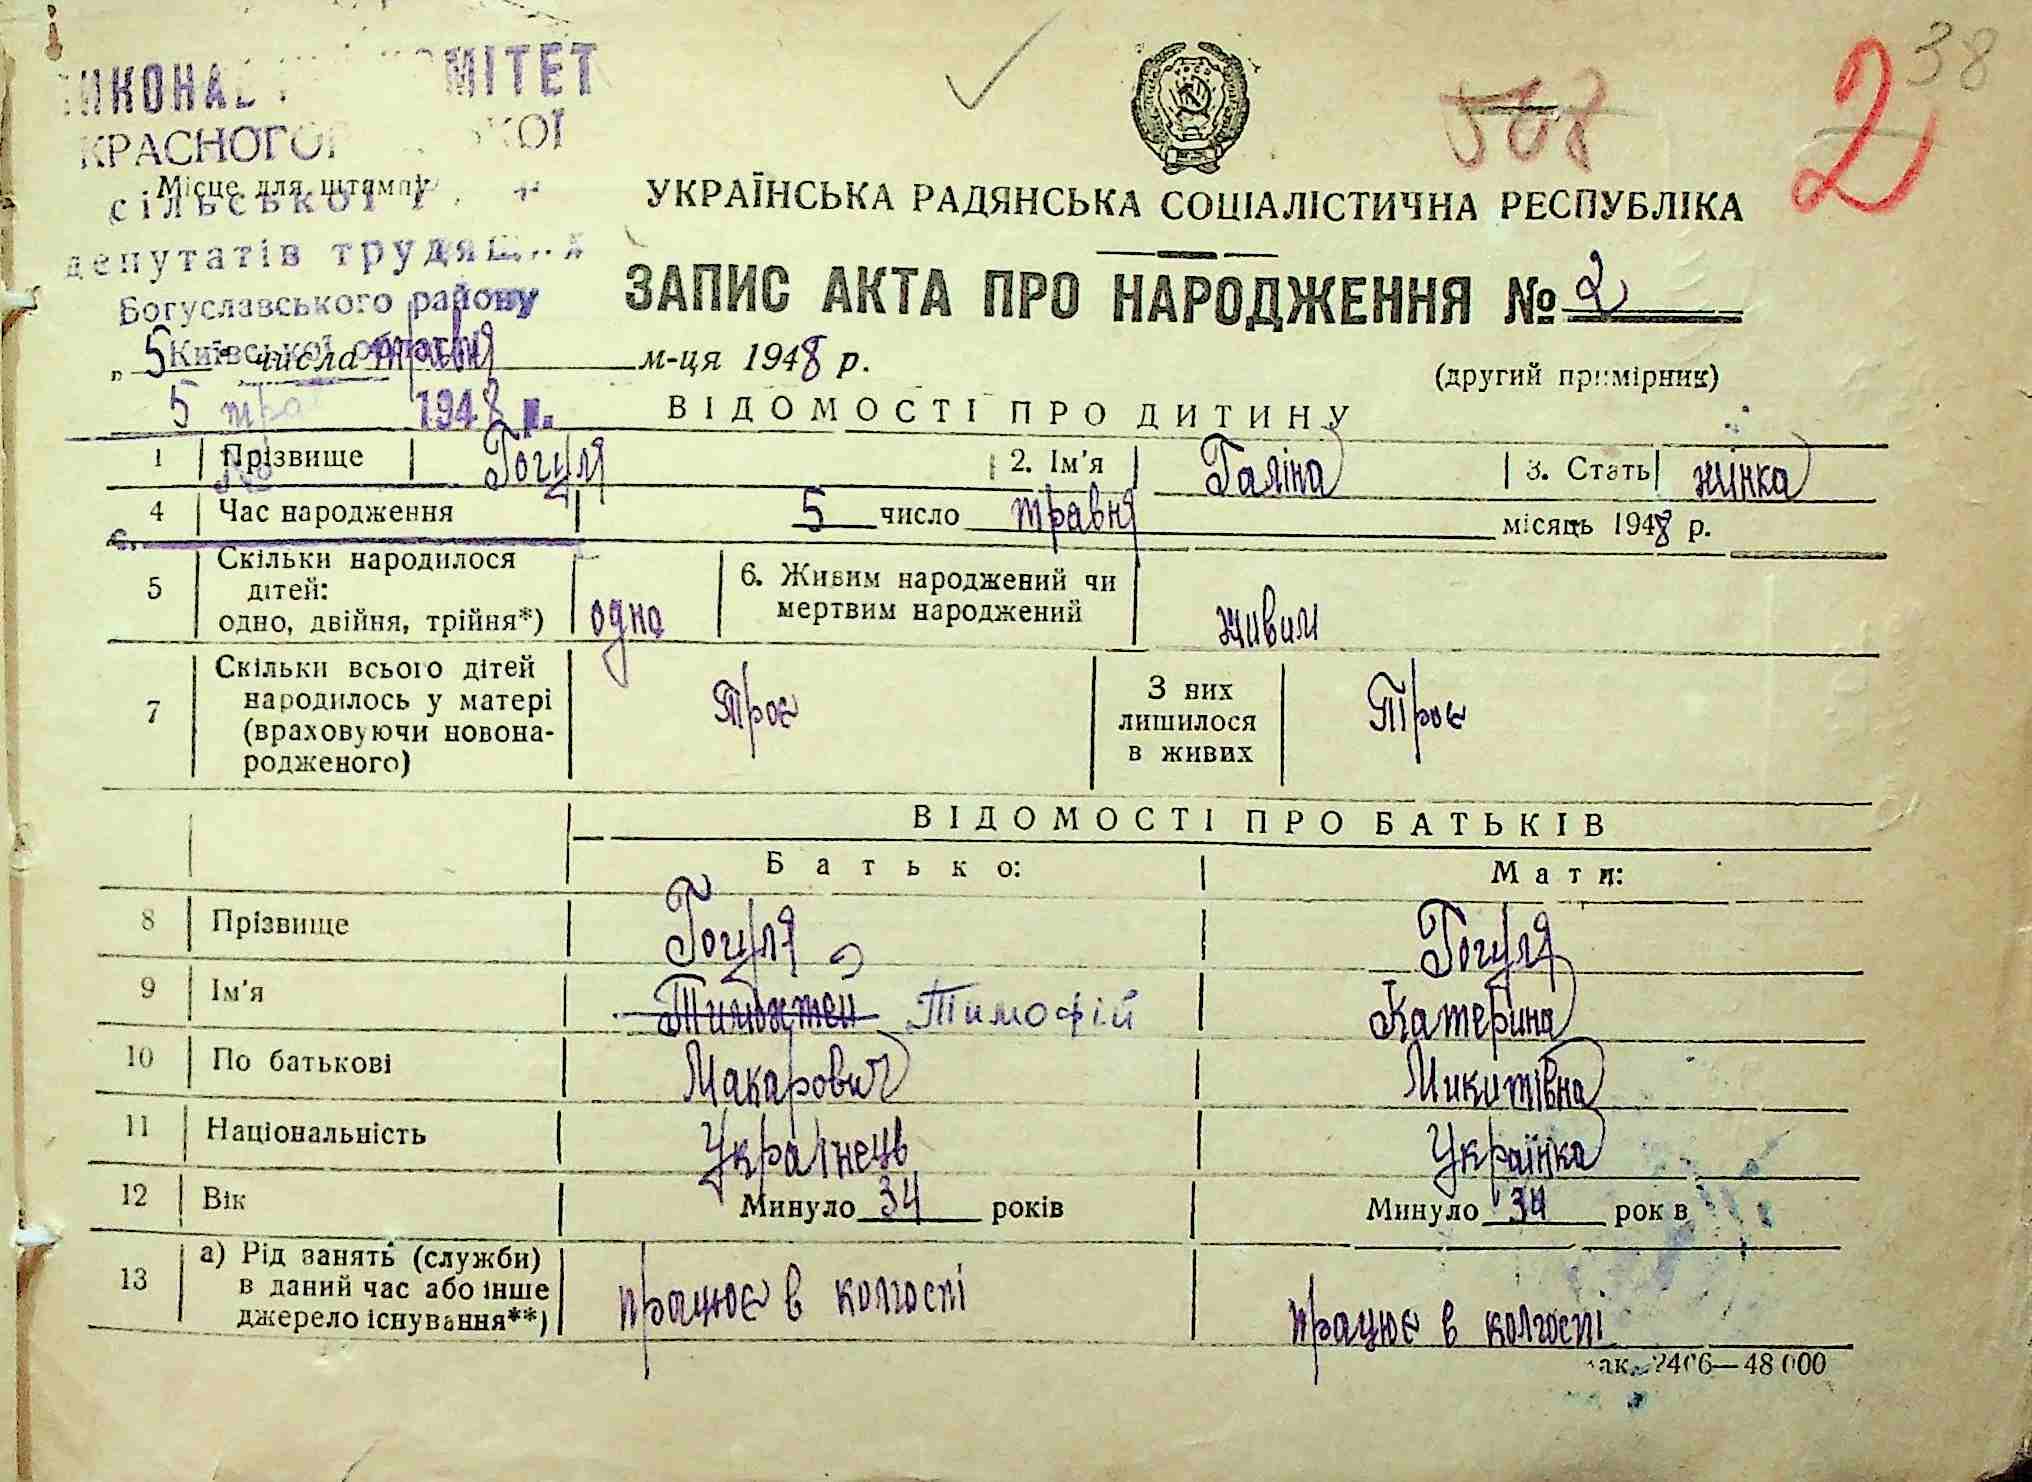 38
2
508
КОМІТЕТ
КРАСНОГОР СЬКОЇ
Місце для штампу
сільської
депутатів трудящих
Богуславського району
Київської області
УКРАЇНСЬКА РАДЯНСЬКА СОЦІАЛІСТИЧНА РЕСПУБЛІКА
ЗАПИС АКТА ПРО НАРОДЖЕННЯ № 2
„5" числа травня м-ця 1948 р.
(другий примірник)
5 тра 1948 р.
ВІДОМОСТІ ПРО ДИТИНУ
1 Прізвище Гогуля 2. Ім'я Галіна 3. Стать жінка
№
4 Час народження 5 число травня місяць 1948 р.
5 Скільки народилося дітей: одно, двійня, трійня*) одна 6. Живим народжений чи мертвим народжений живим
7 Скільки всього дітей народилось у матері (враховуючи новонародженого) Троє З них лишилося в живих Троє
ВІДОМОСТІ ПРО БАТЬКІВ
Батько: Мати:
8 Прізвище Гогуля Гогуля
9 Ім'я Тимофій Катерина
10 По батькові Макарович Микитівна
11 Національність Українець Українка
12 Вік Минуло 34 років Минуло 34 рок в
13 а) Рід занять (служби) в даний час або інше джерело існування**) працює в колгоспі працює в колгоспі
ак. 2406—48 000